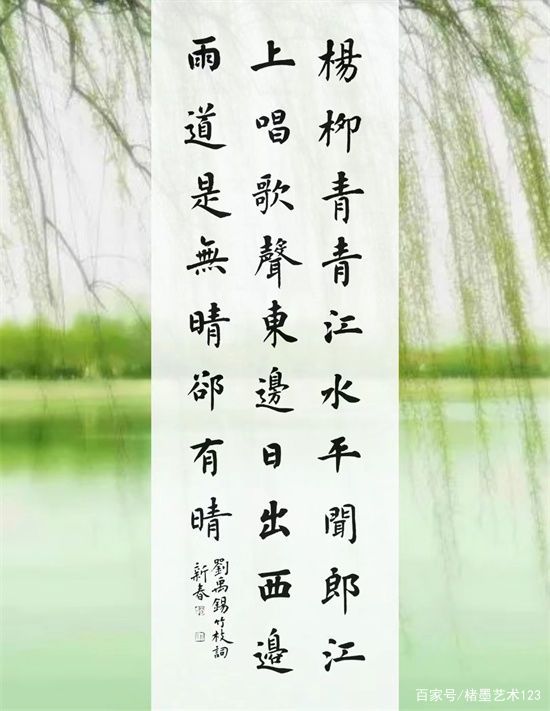 楊柳青青江水平聞郎江
上唱歌聲東邊日出西邊
雨道是無晴郤有晴
劉禹錫竹枝詞
新春
百家号/楮墨艺术123